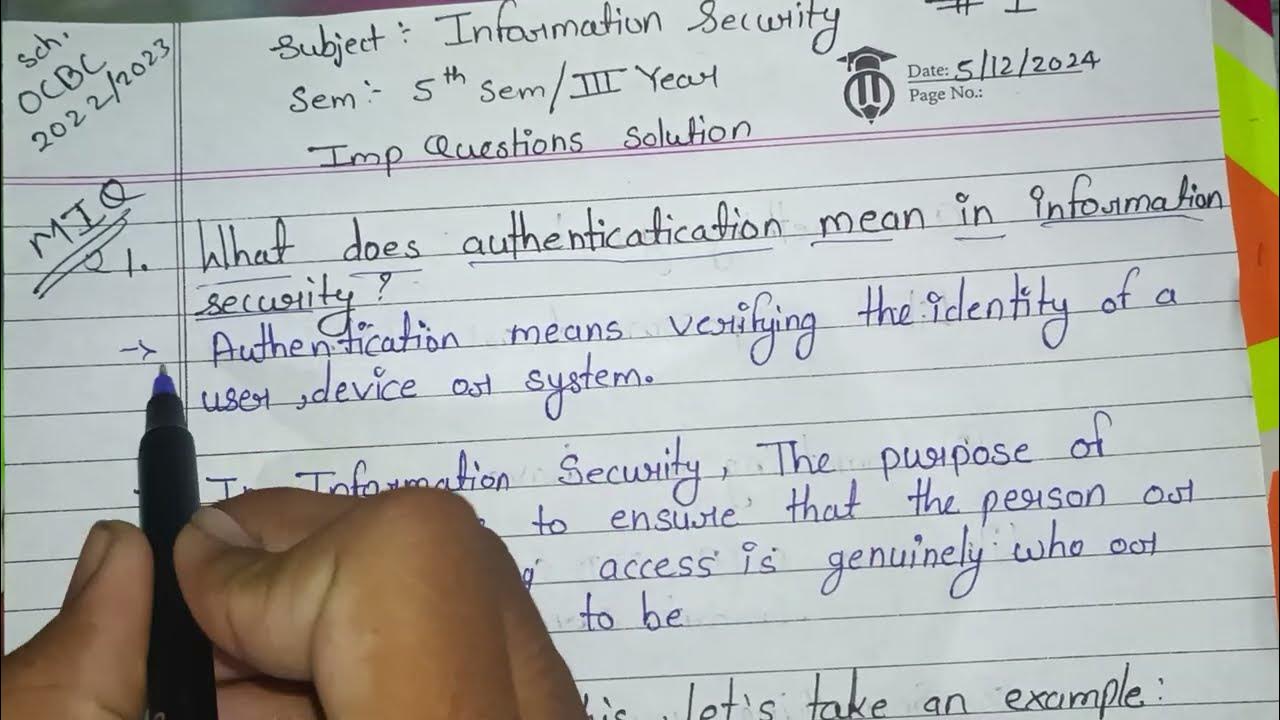 # 1
Subject:- Information Security
Sch.
OCBC
2022/2023
Sem:- 5th Sem/III Year
Date: 5/12/2024
Page No.:
Imp Questions Solution
MIQ
Q1. What does authenticatication mean in information
security?
→ Authentication means verifying the identity of a
user, device or system.
In Information Security, The purpose of
to ensure that the person or
access is genuinely who or
to be
let's take an example: